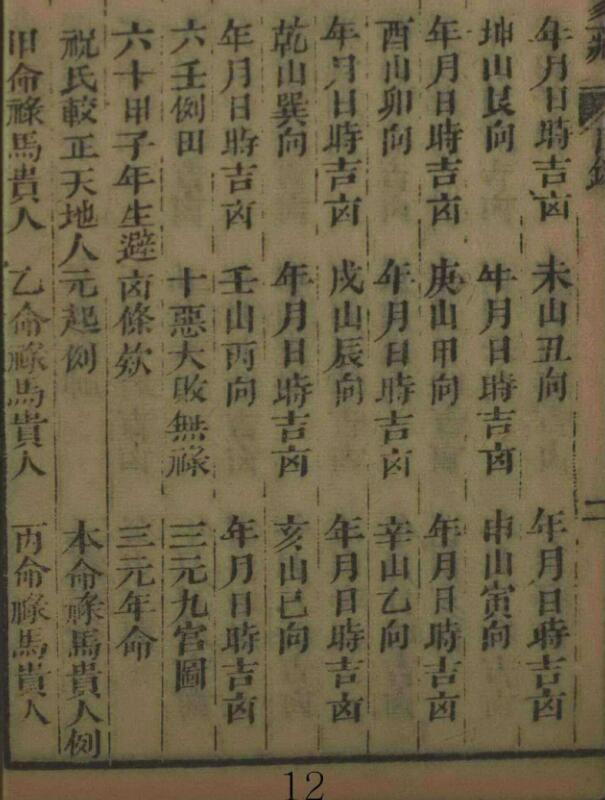 年月日時吉凶 未山丑向 年月日時吉凶
坤山艮向 年月日時吉凶 申山寅向
年月日時吉凶 庚山甲向 年月日時吉凶
酉山卯向 年月日時吉凶 辛山乙向
年月日時吉凶 戌山辰向 年月日時吉凶
乾山巽向 年月日時吉凶 亥山巳向
年月日時吉凶 壬山丙向 年月日時吉凶
六壬例田 十惡大敗無祿 三元九宮圖
六十甲子年生避凶條欸 三元年命
祝氏較正天地人元起例 本命祿馬貴人例
甲命祿馬貴人 乙命祿馬貴人 丙命祿馬貴人
12